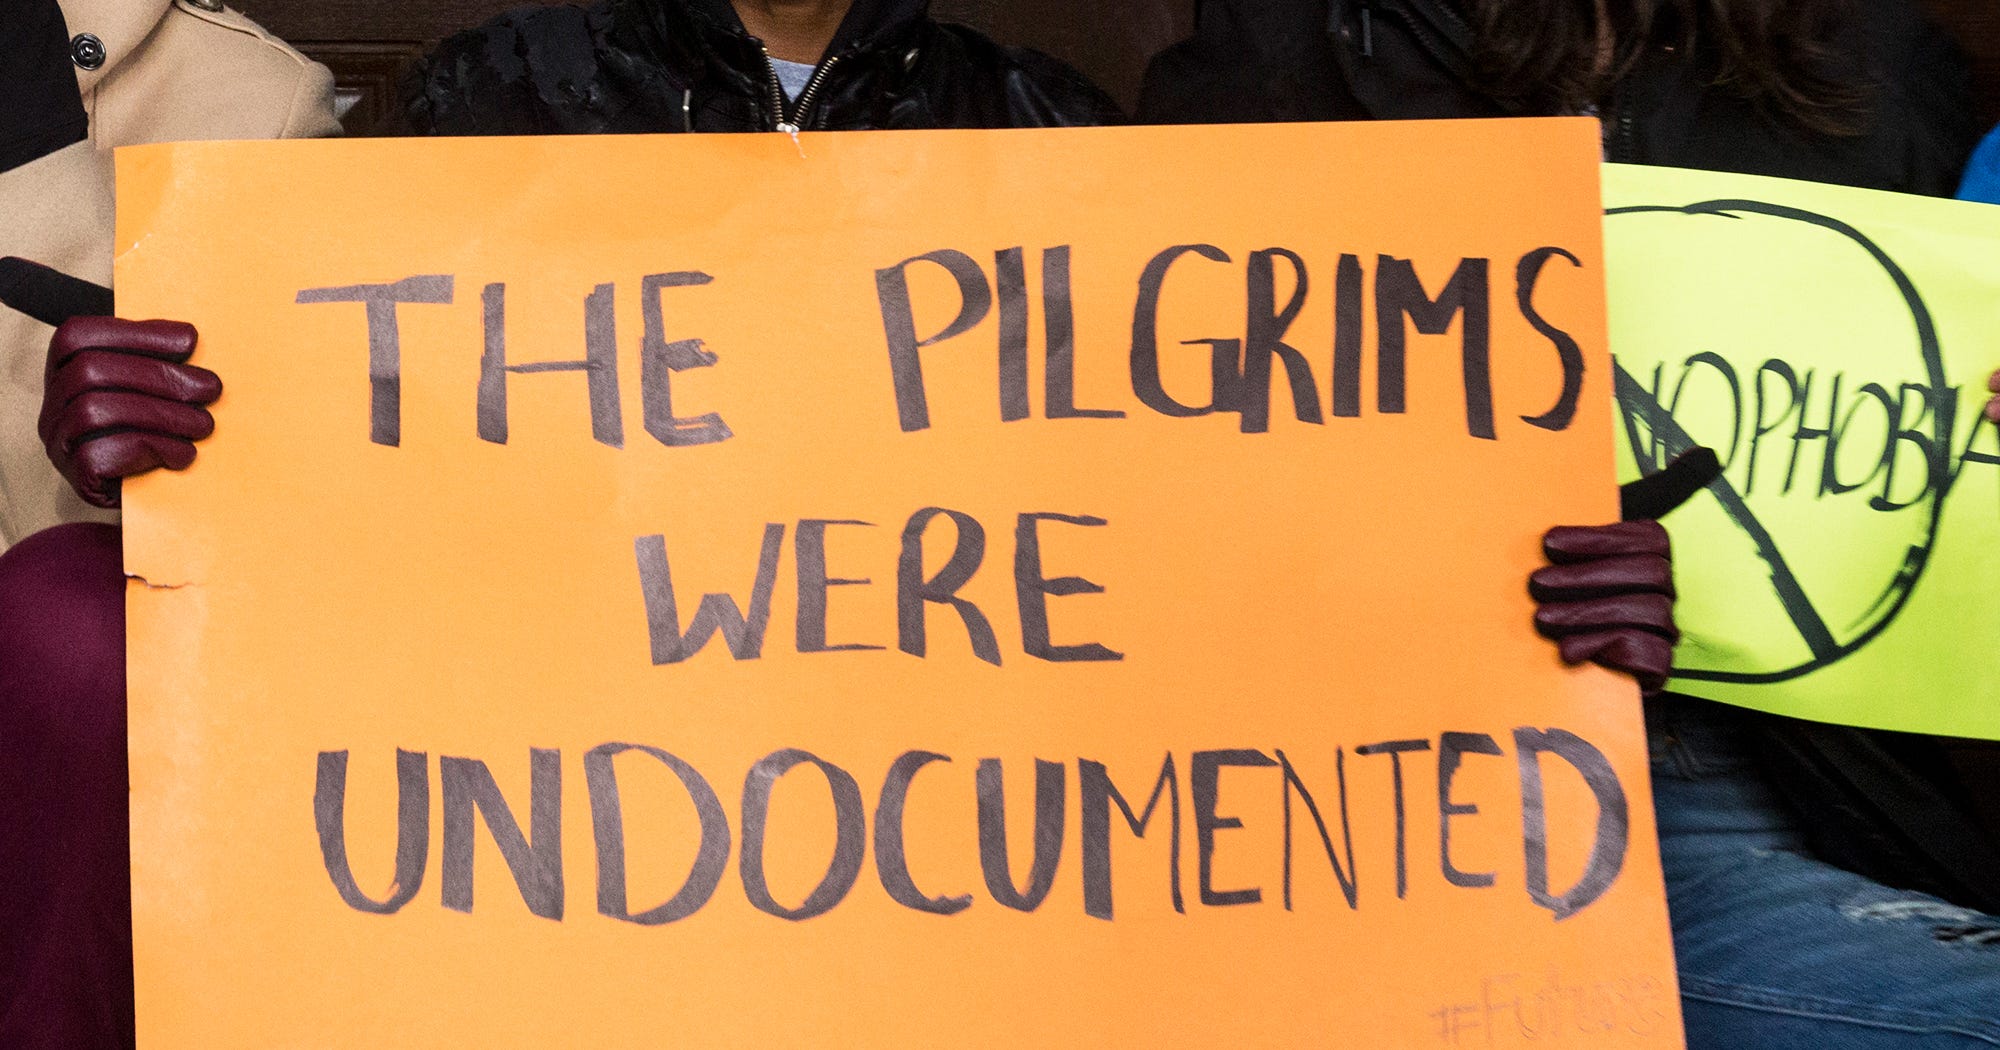 THE PILGRIMS
WERE
UNDOCUMENTED
NOPHOBIA